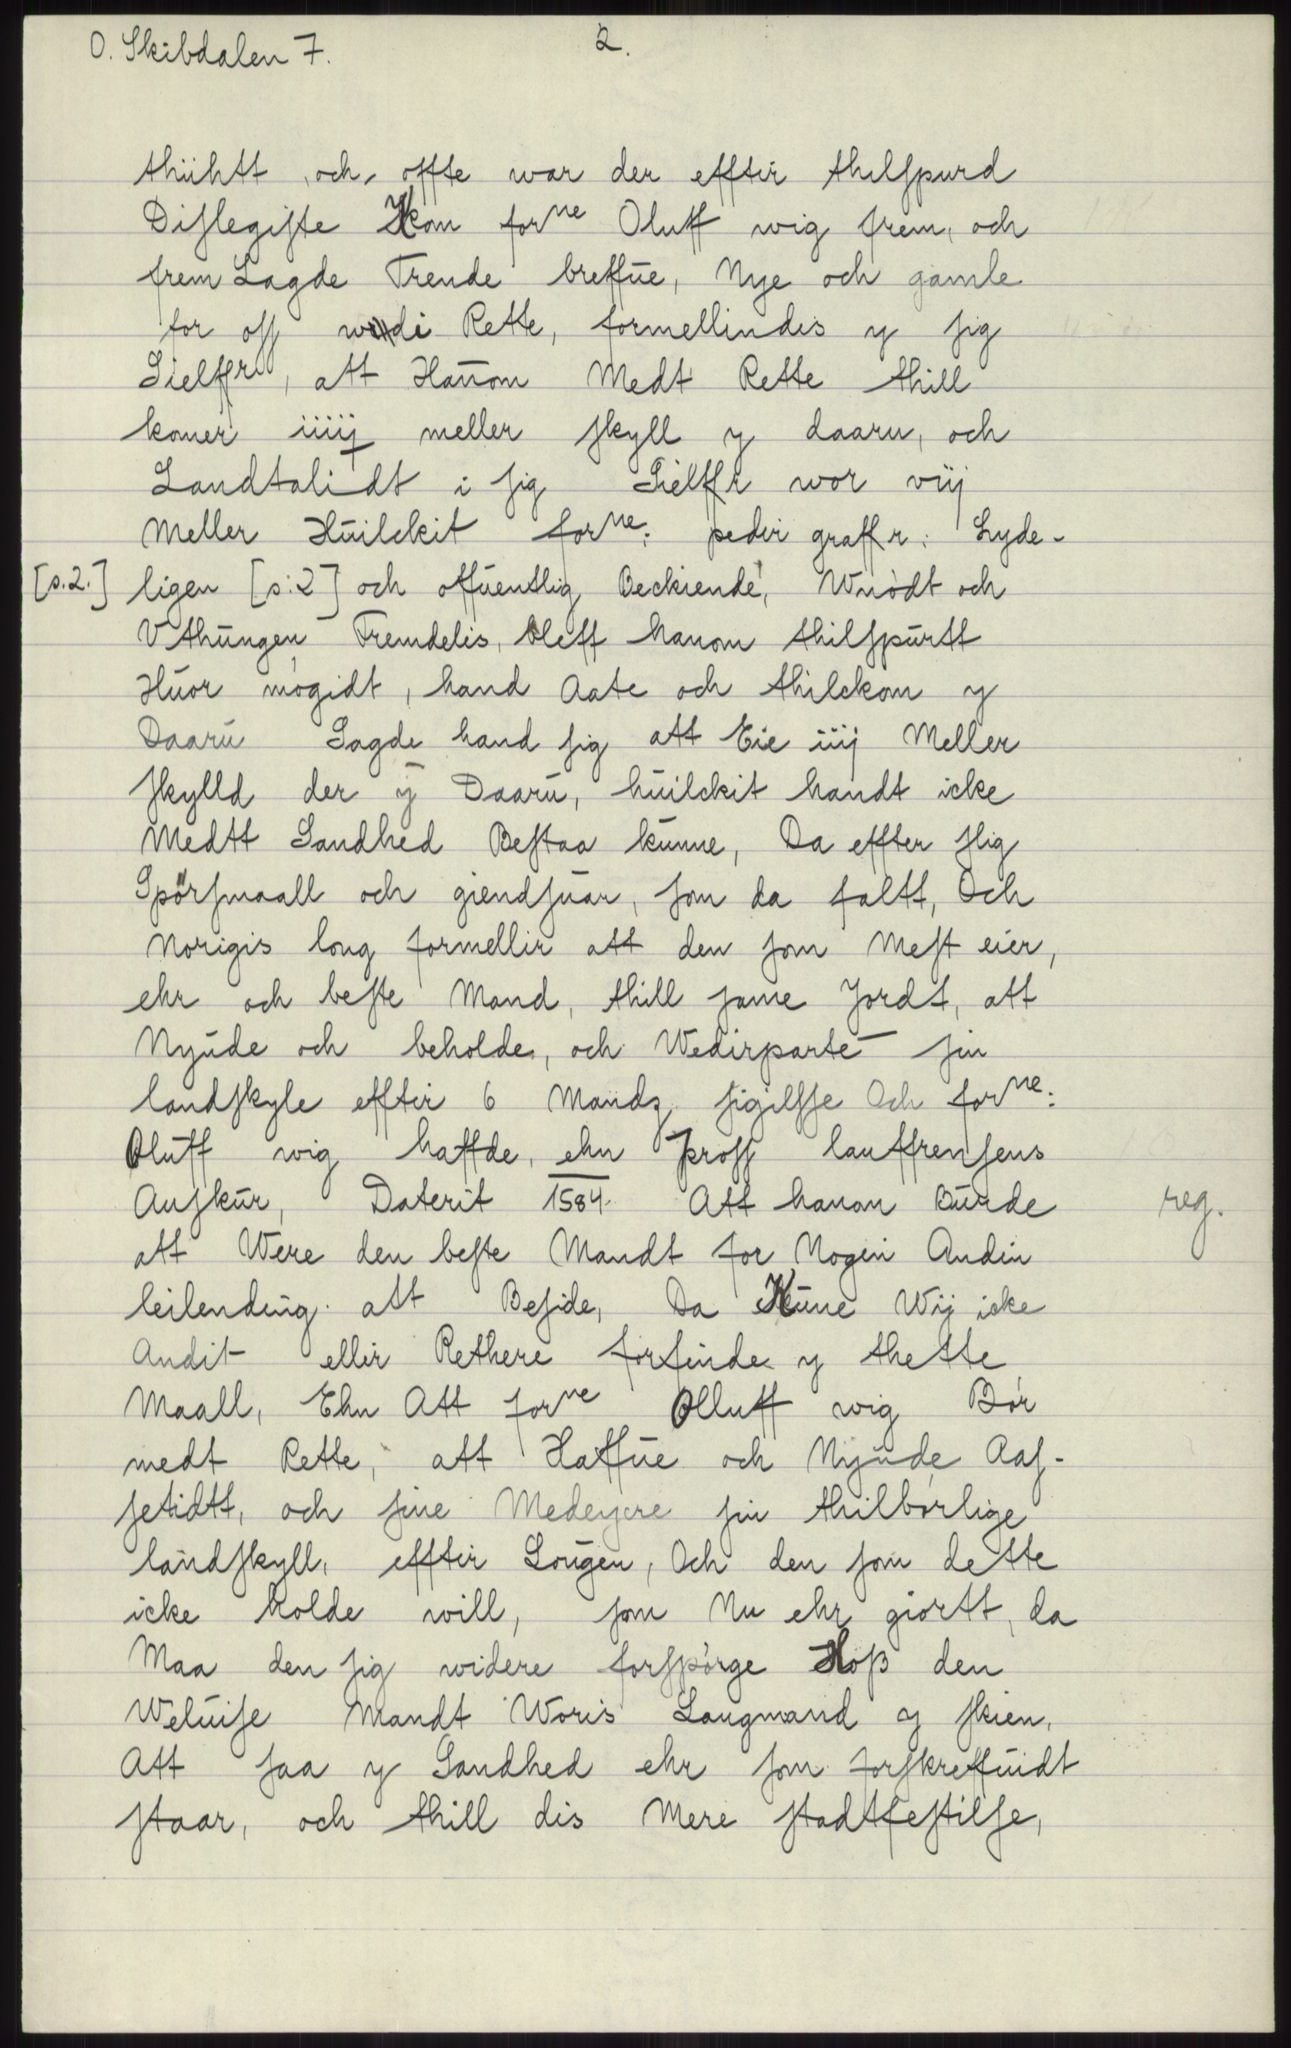 O. Skibdalen 7.
2.
thiihtt och, offte war der efftir thilspurd
Dislegiste Kom forne Oluff wig frem, och
frem Lagde Trende breffue, Nye och gamle
for oss wdi Rette, formellindis y sig
Sielffr, att Hanom Medt Rette thill
komer iiiij meller skyll y daaru, och
Landtalidt i sig Sielffr wor viij
Meller Huilckit forne: pedir graffr: Lyde-
[s.2.] ligen [s:2] och offuentlig Beckiende, Wnödt och
Vthungen Fremdelis, bleff hanom thilspurtt
Huor mögidt, hand Aate och thilckom y
Daaru Sagde hand sig att Eie iiij Meller
skylld der ÿ Daaru, huilckit handt icke
Medtt Sandhed Bestaa kunne, Da effter slig
Spörsmaall och giendsuar, som da faltt, Och
Norigis long formellir att den som Mest eier,
ehr och beste Mand, thill same Jordt, att
Nyude och beholde, och Wedirparte sin
landskyle efftir 6 Mandz sigilsse Och forne:
Oluff wig haffde, ehn Jross lauffrensens
Auskur, Daterit 1584. Att hanom Burde reg.
att Were den beste Mandt for Nogin Andin
leilending att Beside, Da Kune Wij icke
Andit ellir Rethere forfinde y thette
Maall, Ehn Att forne Olluff wig Bör
medt Rette, att Haffue och Nyude Aas-
setidtt, och sine Medeyere sin thilbørlige
landskyll, efftir Lougen, Och den som dette
icke holde will, som Nu ehr giortt, da
Maa den sig widere forspörge Hoß den
Weluise Mandt Woris Laugmand y skien.
Att saa y Sandhed ehr som forskreffuidt
staar, och thill dis Mere stadtfestilse,